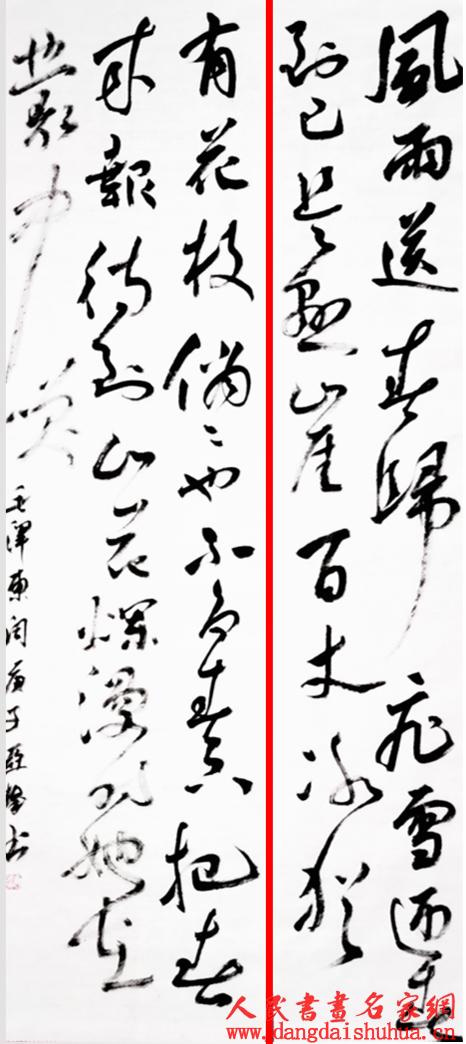 風雨送春歸飛雪迎春
到已是懸崖百丈冰猶
有花枝俏々也不爭春只把春
来報待到山花爛漫時她在
叢中笑
毛澤東詞庚子亞書
人民書畫名家網
www.dangdaishuhua.com